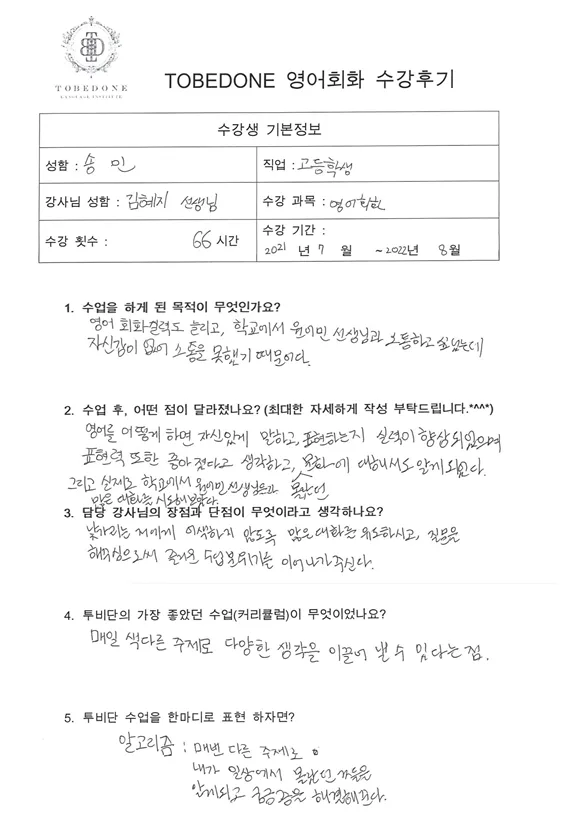 TOBEDONE
LANGUAGE INSTITUTE
TOBEDONE 영어회화 수강후기
수강생 기본정보
성함 : 송 민
직업 : 고등학생
강사님 성함 : 김혜지 선생님
수강 과목 : 영어회화
수강 횟수 : 66 시간
수강 기간 :
2021 년 7 월 ~2022년 8월
1. 수업을 하게 된 목적이 무엇인가요?
영어 회화실력도 늘리고, 학교에서 원어민 선생님과 소통하고 싶었는데
자신감이 없어 소통을 못했기 때문이다.
2. 수업 후, 어떤 점이 달라졌나요? (최대한 자세하게 작성 부탁드립니다.*^^*)
영어를 어떻게 하면 자신있게 말하고, 표현하는지 실력이 향상되었으며
표현력 또한 좋아졌다고 생각하고, 문화에 대해서도 알게 되었다.
그리고 실제로 학교에서 원어민 선생님과 몰랐던
많은 대화를 시도해보았다.
3. 담당 강사님의 장점과 단점이 무엇이라고 생각하나요?
낯가리는 저에게 어색하지 않도록 많은 대화를 유도하시고, 질문을
해주심으로써 즐거운 수업분위기를 이어나가주신다.
4. 투비단의 가장 좋았던 수업(커리큘럼)이 무엇이었나요?
매일 색다른 주제로 다양한 생각을 이끌어 낼 수 있다는 점.
5. 투비단 수업을 한마디로 표현 하자면?
알고리즘 : 매번 다른 주제로
내가 일상에서 몰랐던 것들을
알게되고 궁금증을 해결해준다.